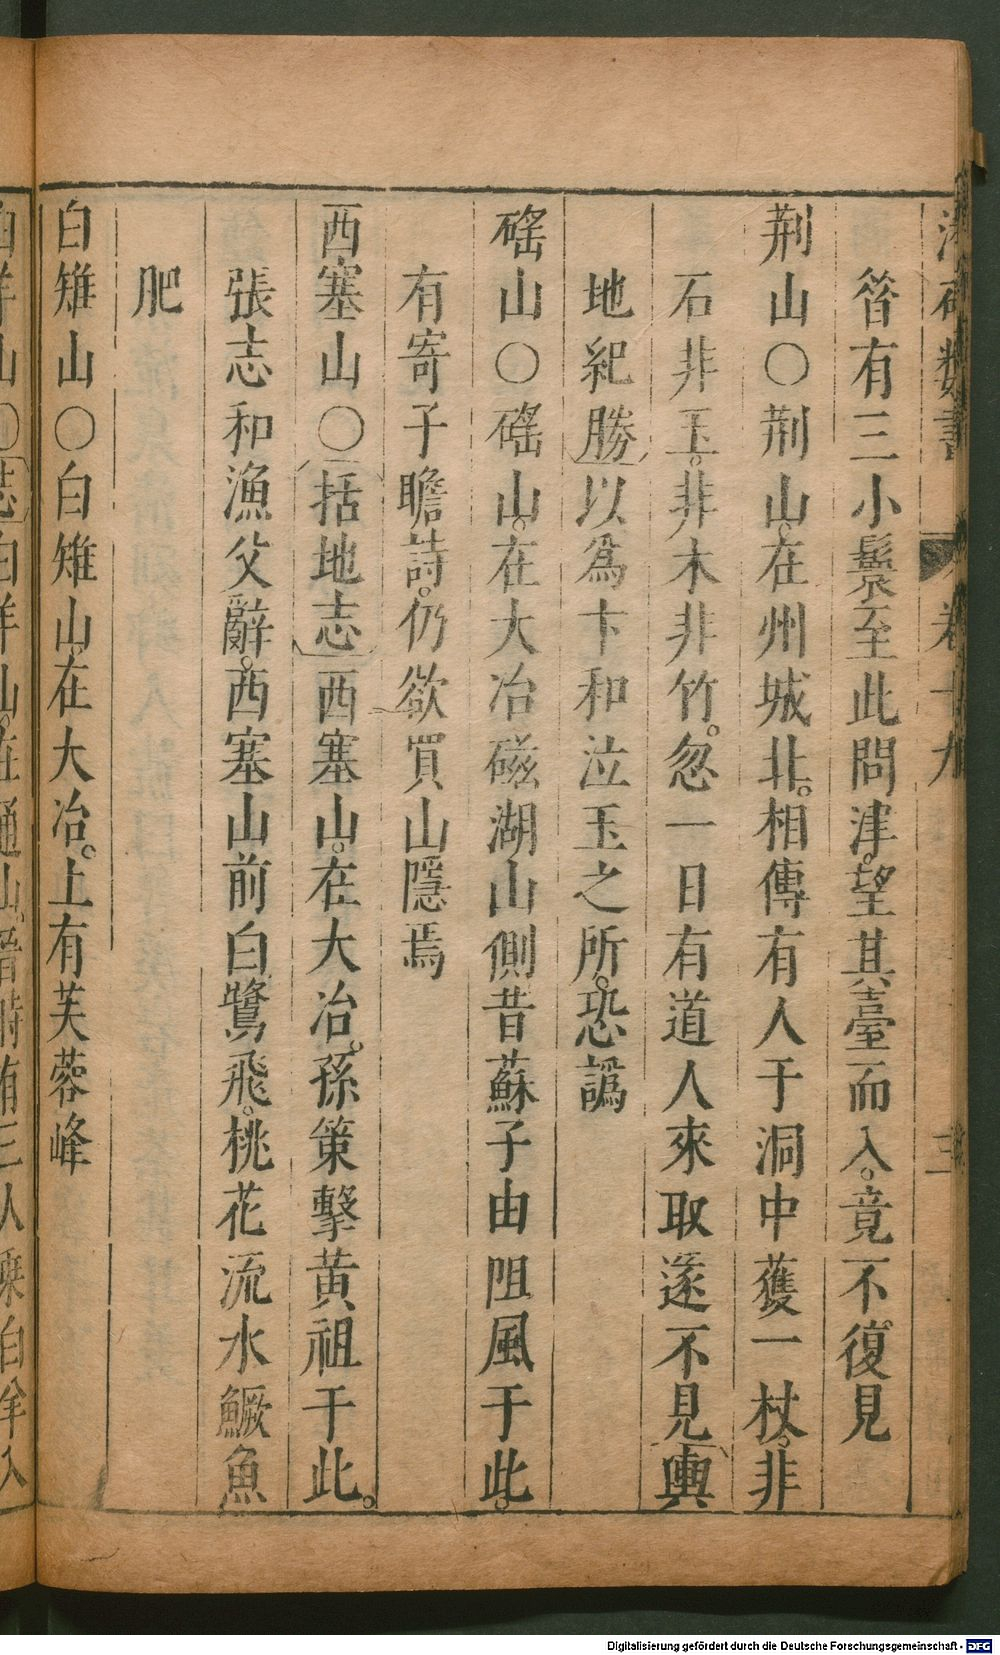 潛確類書 卷十九 三
昝有三小鬟至此問津。望其臺而入。竟不復見
荆山○荆山。在州城北。相傳有人于洞中獲一杖。非
石非玉。非木非竹。忽一日有道人來取遂不見輿
地紀勝以爲卞和泣玉之所。恐譌
磘山○磘山。在大冶磁湖山側昔蘇子由阻風于此。
有寄子瞻詩。仍欲買山隱焉
西塞山○括地志西塞山。在大冶。孫策擊黄祖于此。
張志和漁父辭。西塞山前白鷺飛。桃花流水鱖魚
肥
白雉山○白雉山。在大冶。上有芙蓉峰
白羊山○志白羊山。在通山。晉時有三人乗白羊入
Digitalisierung gefördert durch die Deutsche Forschungsgemeinschaft - DFG